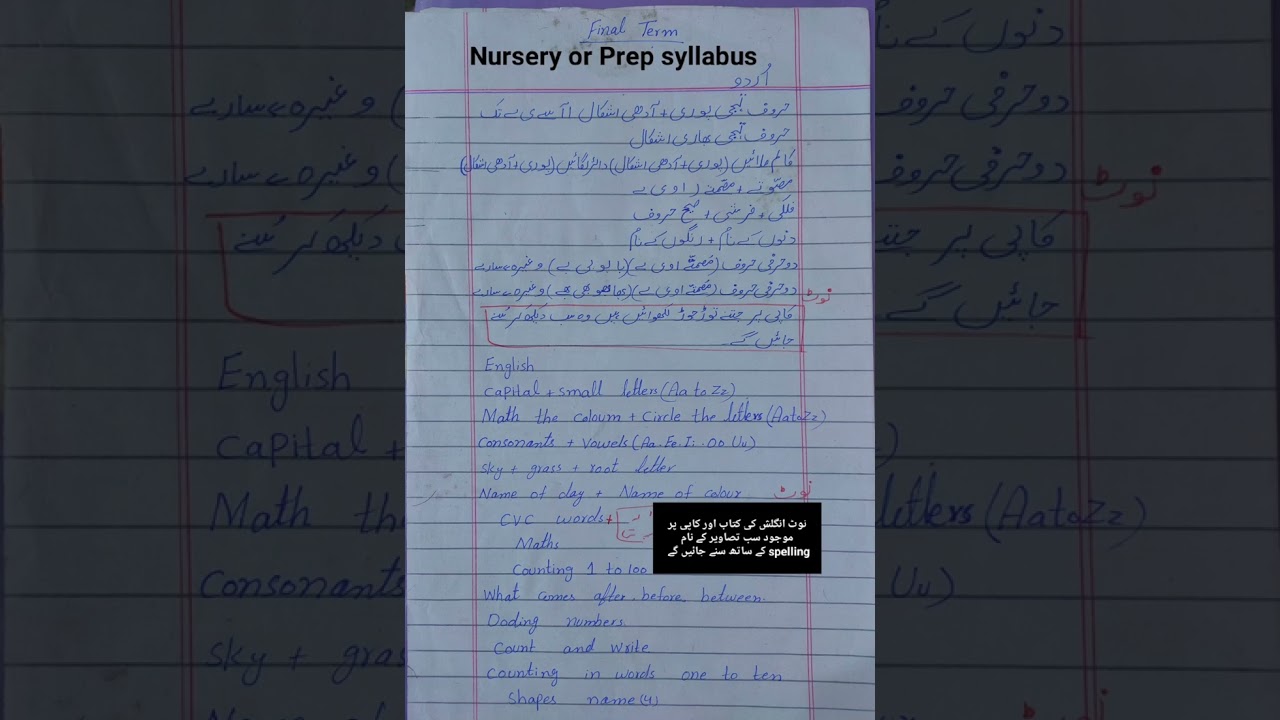 Final Term
Nursery or Prep syllabus
اُردو
حروف تہجی پوری + آدھی اشکال ا آ سے ی ے تک
حروف تہجی بھاری اشکال
کالم ملائیں (پوری + آدھی اشکال) دائرہ لگائیں (پوری + آدھی اشکال)
مصوتے + مصمتے ا و ی ے
فلکی + فرشی + صحیح حروف
دنوں کے نام + رنگوں کے نام
دو حرفی حروف (مصمتے ا و ی ے) (با بو بی بے) وغیرہ سارے
دو حرفی حروف (مصمتے ا و ی ے) (بھا بھو بھی بھے) وغیرہ سارے
نوٹ
کاپی پر جتنے توڑ جوڑ لکھوائیں ہیں وہ سب دیکھ کر سنے
جائیں گے۔
English
Capital + small letters (Aa to Zz)
Math the coloum + Circle the letters (Aa to Zz)
Consonants + Vowels (Aa. Ee. Ii. Oo. Uu)
Sky + grass + root letter
Name of day + Name of colour نوٹ
CVC words +
نوٹ انگلش کی کتاب اور کاپی پر
موجود سب تصاویر کے نام
spelling کے ساتھ سنے جائیں گے
Maths
Counting 1 to 100
What comes after. before. between.
Doding numbers.
Count and Write
Counting in words one to ten
Shapes name (4)